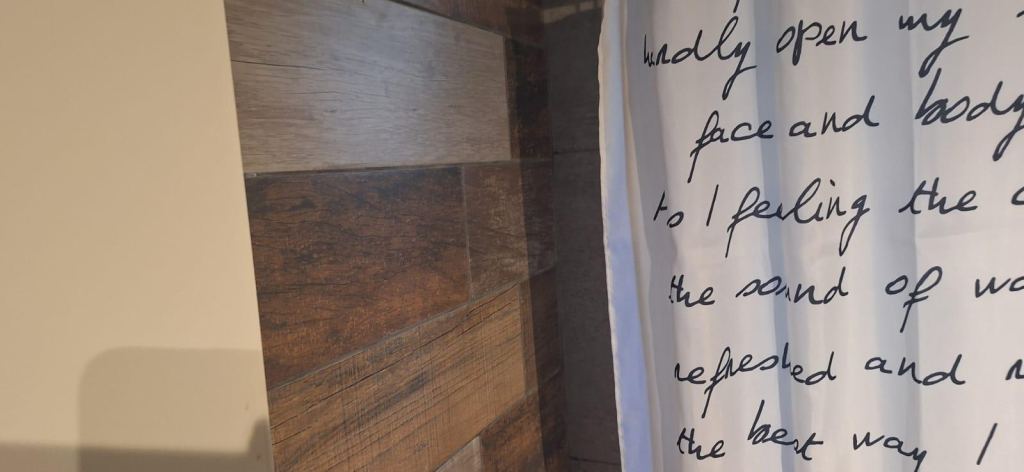 open my
face and body
to I feeling the
the sound of
refreshed and
the best way I